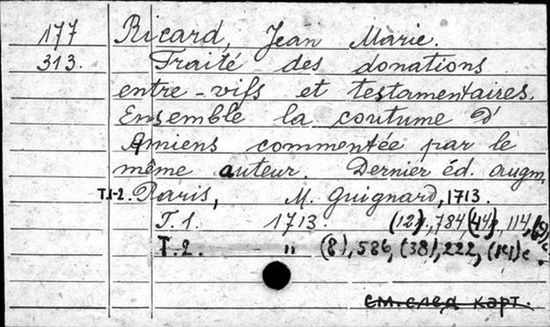 177 Ricard, Jean Marie.
313. Traité des donations
entre-vifs et testamentaires.
Ensemble la coutume d'
Amiens commentée par le
même auteur. Dernier éd. augm.
T.1-2. Paris, M. Guignard, 1713.
T.1. 1713. (12), 784, (44), 114,
T.2. " (8), 586, (38), 222, (14) с.
см. след карт.